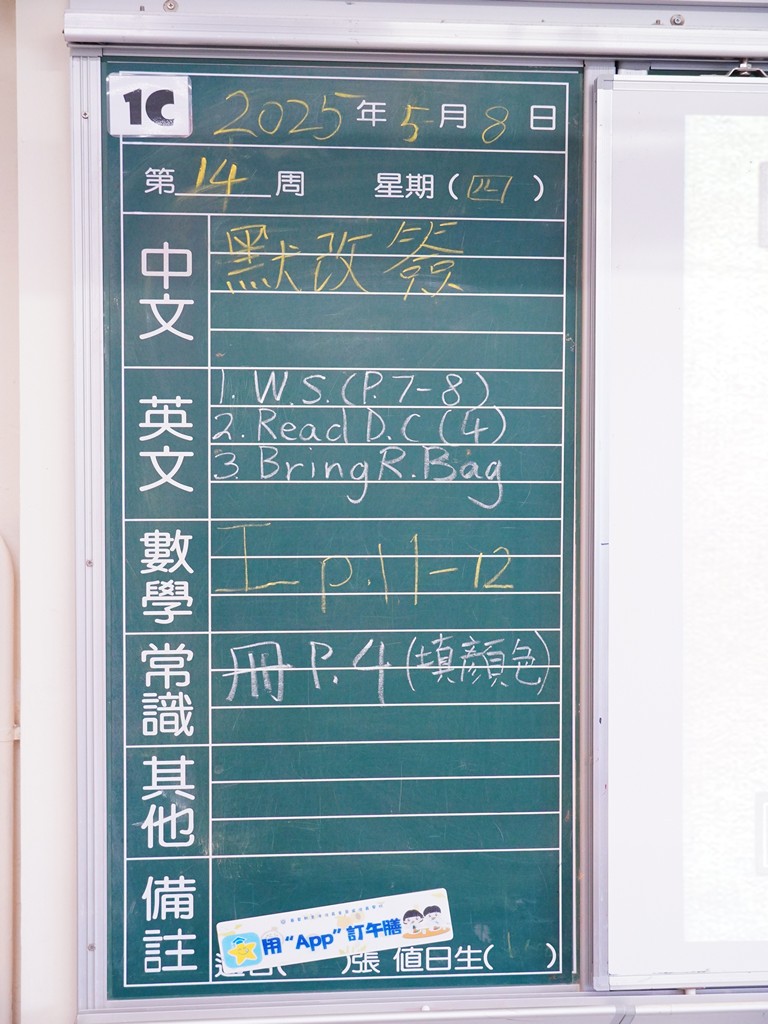 1C
2025年5月8日
第14周 星期(四)
中文
默改簽
英文
1. W.S. (P.7-8)
2. Read D.C (4)
3. Bring R. Bag
數學
工 p.11-12
常識
冊 P.4 (填顏色)
其他
備註
用“App”訂午膳
( )張 值日生( )